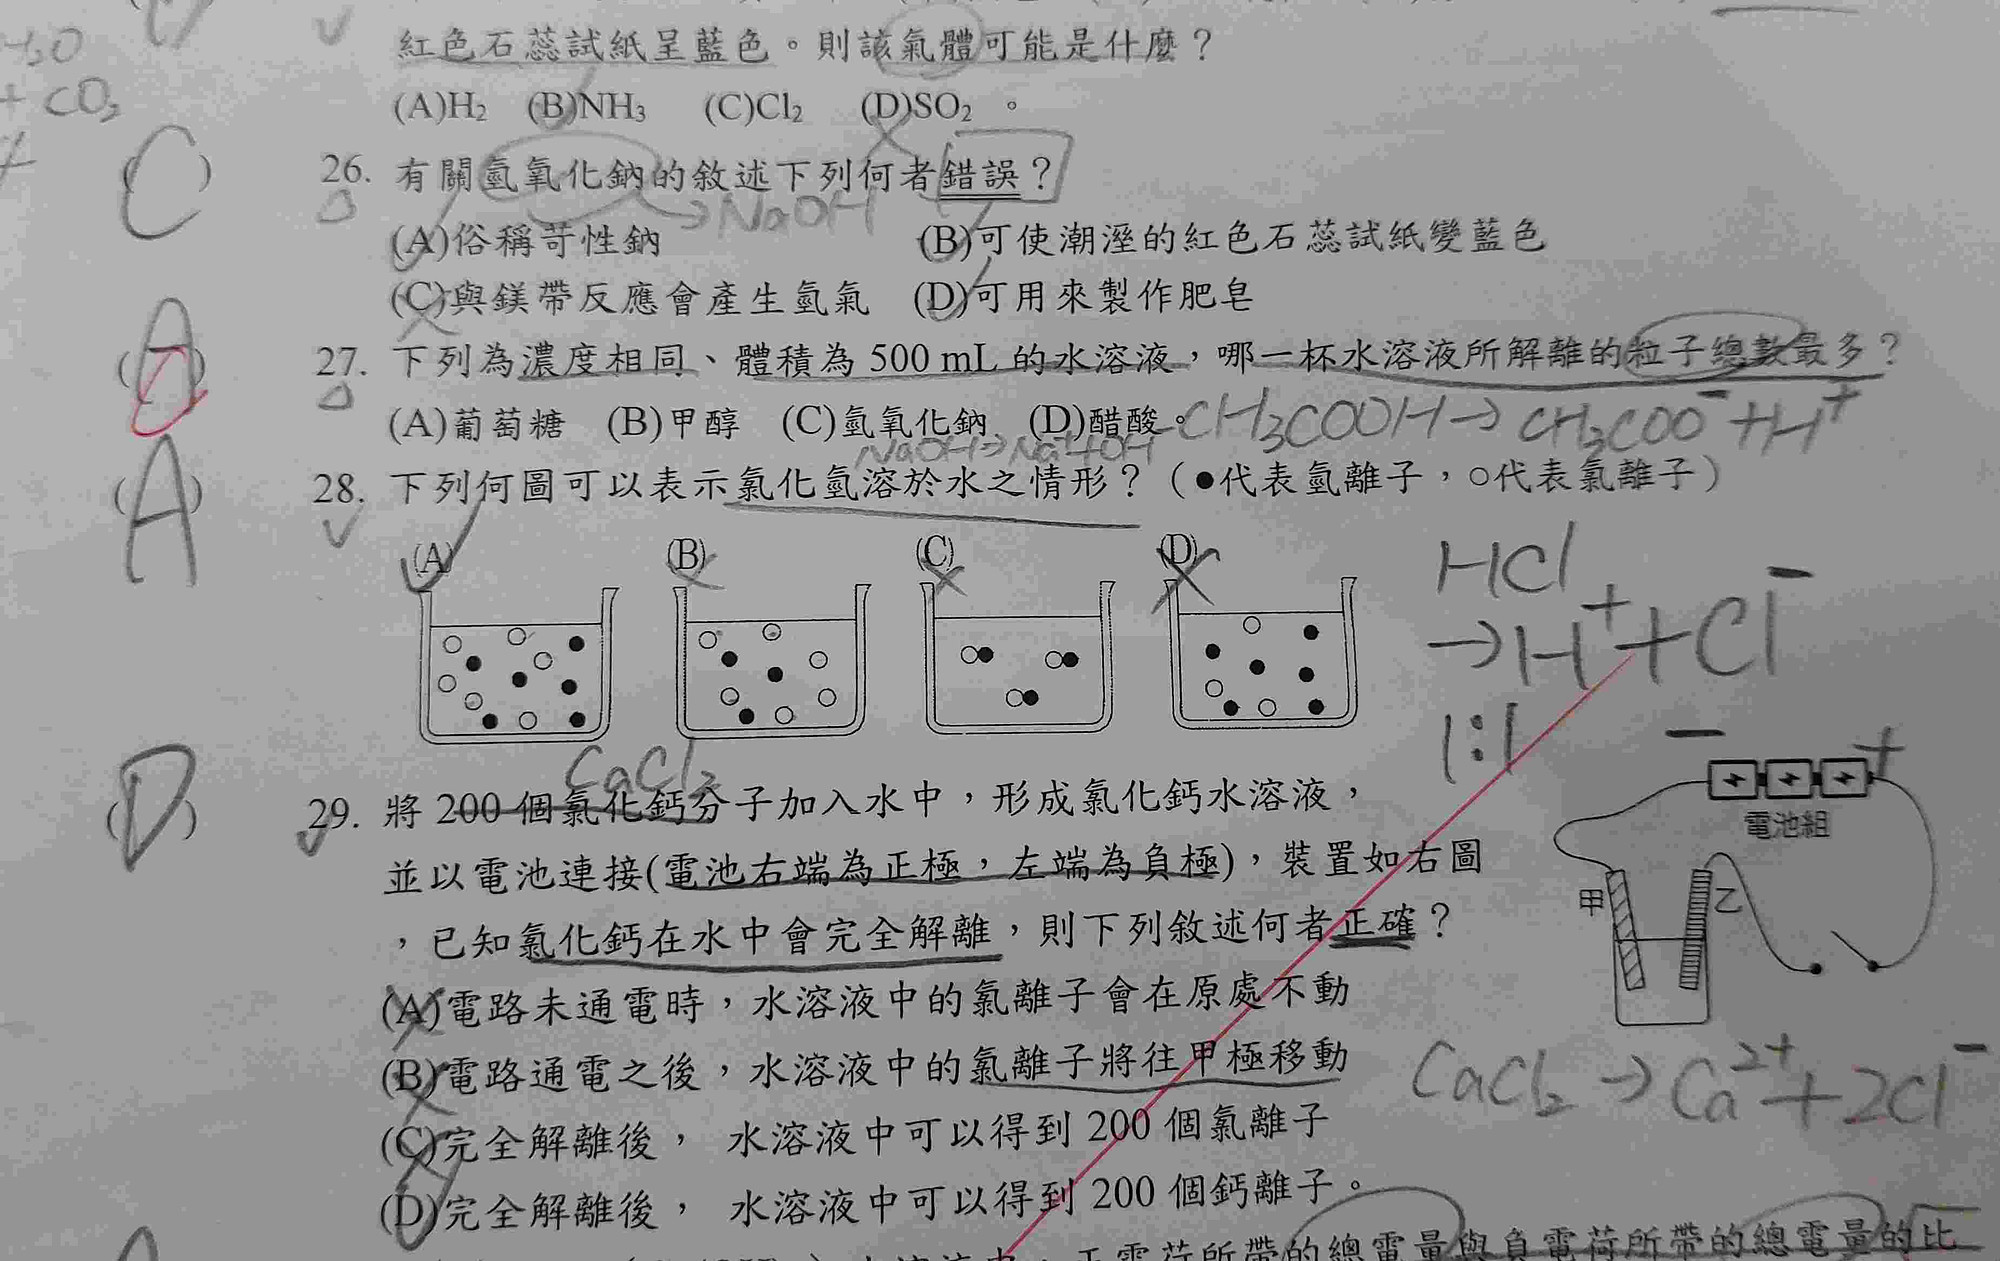 紅色石蕊試紙呈藍色。則該氣體可能是什麼？
H₂O
+ CO₂
(A)H₂ (B)NH₃ (C)Cl₂ (D)SO₂ 。
(C) 26. 有關氫氧化鈉的敘述下列何者錯誤？
→NaOH
(A)俗稱苛性鈉 (B)可使潮溼的紅色石蕊試紙變藍色
(C)與鎂帶反應會產生氫氣 (D)可用來製作肥皂
(A) 27. 下列為濃度相同、體積為 500 mL 的水溶液，哪一杯水溶液所解離的粒子總數最多？
(A)葡萄糖 (B)甲醇 (C)氫氧化鈉 (D)醋酸。CH₃COOH→CH₃COO⁻+H⁺
NaOH→Na⁺+OH⁻
(A) 28. 下列何圖可以表示氯化氫溶於水之情形？（●代表氫離子，○代表氯離子）
(A) (B) (C) (D)
HCl
→H⁺+Cl⁻
1:1
− +
電池組
CaCl₂
(D) 29. 將 200 個氯化鈣分子加入水中，形成氯化鈣水溶液，
並以電池連接(電池右端為正極，左端為負極)，裝置如右圖
甲 乙
，已知氯化鈣在水中會完全解離，則下列敘述何者正確？
(A)電路未通電時，水溶液中的氯離子會在原處不動
(B)電路通電之後，水溶液中的氯離子將往甲極移動
CaCl₂→Ca²⁺+2Cl⁻
(C)完全解離後， 水溶液中可以得到 200 個氯離子
(D)完全解離後， 水溶液中可以得到 200 個鈣離子。
正電荷所帶的總電量與負電荷所帶的總電量的比